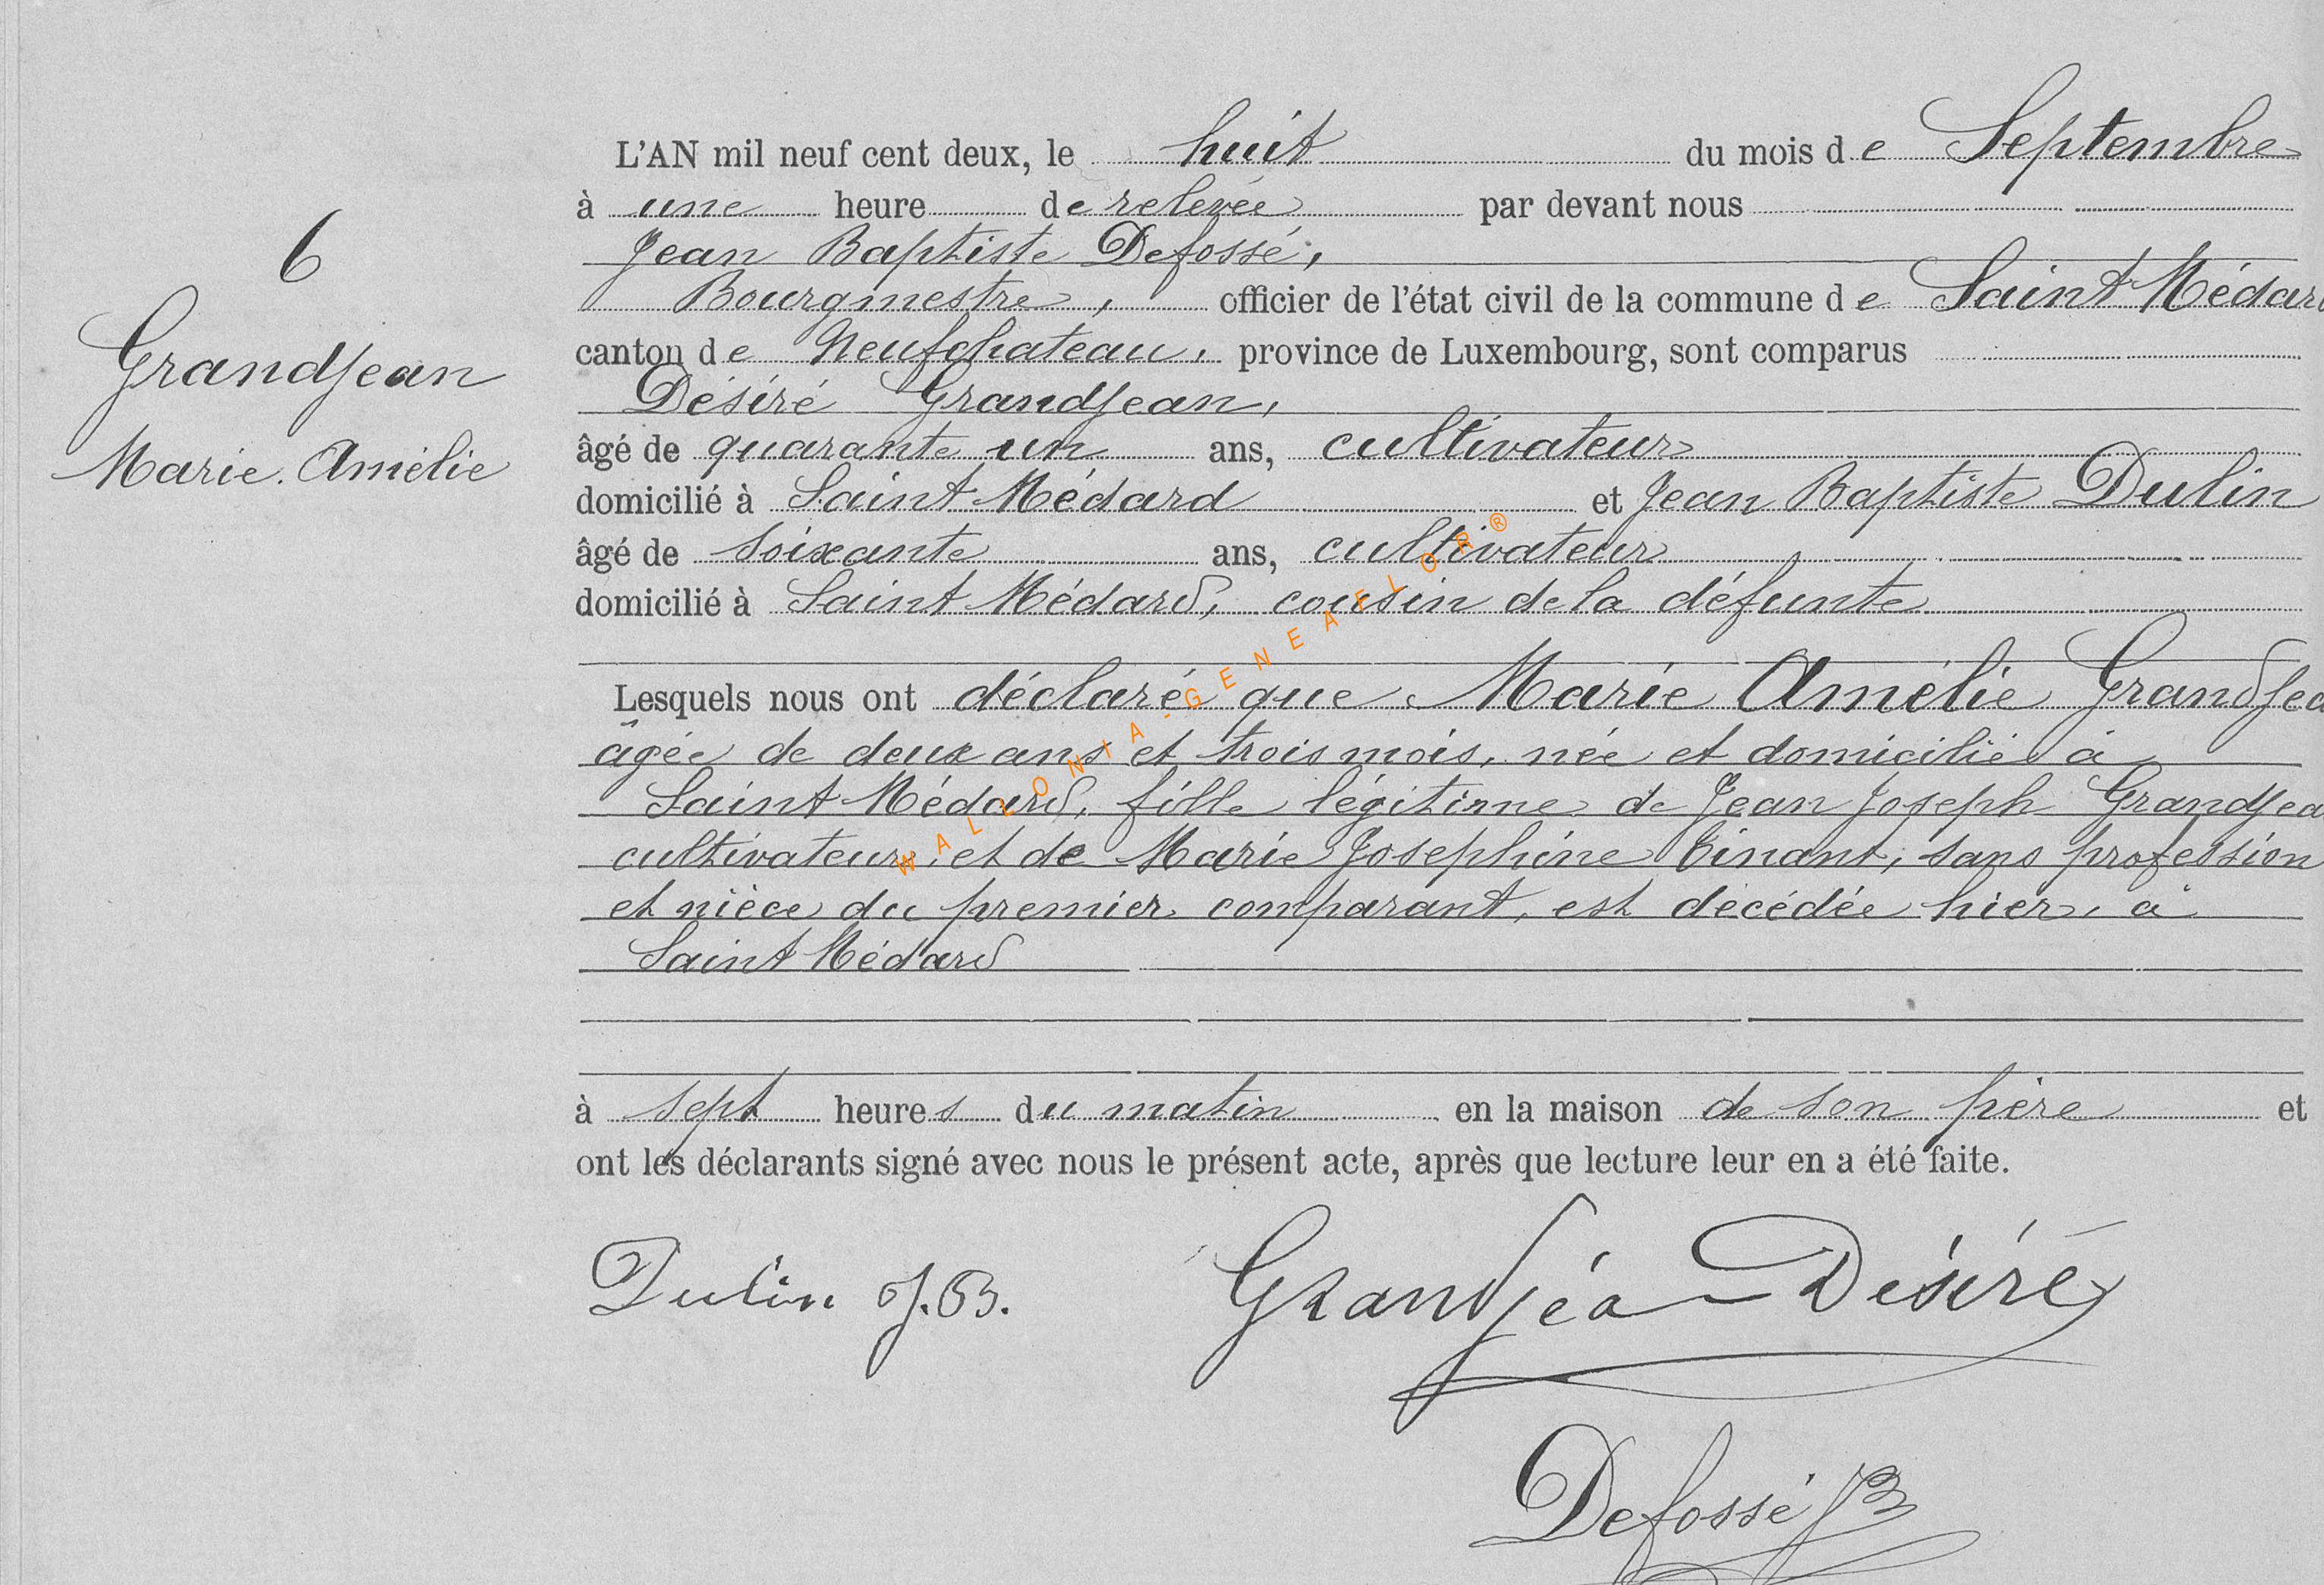 6
Grandjean
Marie. Amélie
L'AN mil neuf cent deux, le huit du mois de Septembre
à une heure de relevée par devant nous
Jean Baptiste Defossé,
Bourgmestre, officier de l'état civil de la commune de Saint Médard
canton de Neufchateau, province de Luxembourg, sont comparus
Désiré Grandjean,
âgé de quarante un ans, cultivateur
domicilié à Saint Médard et Jean Baptiste Dulin
âgé de soixante ans, cultivateur
domicilié à Saint Médard, cousin de la défunte
Lesquels nous ont déclaré que Marie Amélie Grandjea
âgée de deux ans et trois mois, née et domiciliée à
Saint Médard, fille légitime de Jean Joseph Grandjea
cultivateur, et de Marie Josephine Tinant, sans profession
et nièce du premier comparant, est décédée hier, à
Saint Médard
à sept heures du matin en la maison de son père et
ont les déclarants signé avec nous le présent acte, après que lecture leur en a été faite.
Dulin J.B. Grandjean Désiré
Defossé JB
WALLONIA-GENEAFLOR®